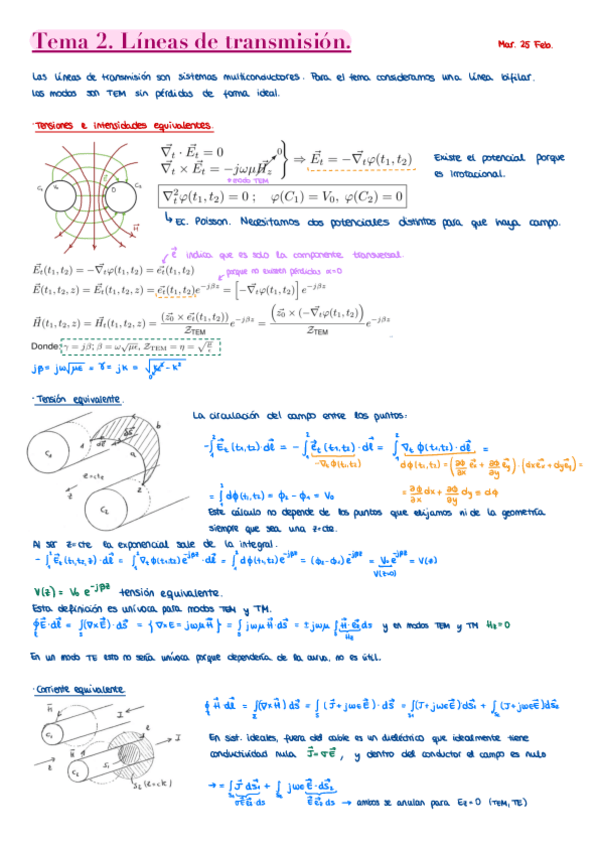 Tema 2. Líneas de transmisión.
Mar. 25 Feb.
Las líneas de transmisión son sistemas multiconductores. Para el tema consideramos una línea bifilar.
Los modos son TEM sin pérdidas de forma ideal.
· Tensiones e intensidades equivalentes.
∇⃗t · E⃗t = 0
∇⃗t × E⃗t = −jωμH⃗z
0
⇒ E⃗t = −∇⃗tφ(t1, t2)
Existe el potencial porque
es irrotacional.
modo TEM
∇⃗t²φ(t1, t2) = 0 ; φ(C1) = V0, φ(C2) = 0
↳ Ec. Poisson. Necesitamos dos potenciales distintos para que haya campo.
e⃗ indica que es solo la componente transversal.
E⃗t(t1, t2) = −∇⃗tφ(t1, t2) = e⃗t(t1, t2)
porque no existen pérdidas α=0
E⃗(t1, t2, z) = E⃗t(t1, t2, z) = e⃗t(t1, t2)e^−jβz = [−∇⃗tφ(t1, t2)] e^−jβz
H⃗(t1, t2, z) = H⃗t(t1, t2) = (z⃗0 × e⃗t(t1, t2))/Z_TEM e^−jβz = (z⃗0 × (−∇⃗tφ(t1, t2)))/Z_TEM e^−jβz
Donde: γ = jβ; β = ω√με, Z_TEM = η = √(μ/ε)
jβ = jω√με = γ = jk = √(kc² − k²)
0
· Tensión equivalente.
La circulación del campo entre los puntos:
−∫₁² E⃗t(t1,t2)·dl⃗ = −∫₁² e⃗t(t1,t2)·dl⃗ = ∫₁² ∇t ϕ(t1,t2)·dl⃗ =
−∇tϕ(t1,t2)
dϕ(t1,t2) = (∂ϕ/∂x e⃗x + ∂ϕ/∂y e⃗y)·(dx e⃗x + dy e⃗y) =
= ∫₁² dϕ(t1,t2) = ϕ2 − ϕ1 = V0
= ∂ϕ/∂x dx + ∂ϕ/∂y dy = dϕ
Este cálculo no depende de los puntos que elijamos ni de la geometría
siempre que sea una z=cte.
Al ser z=cte la exponencial sale de la integral.
−∫₁² E⃗t(t1,t2,z)·dl⃗ = ∫₁² ∇tϕ(t1,t2)e^−jβz·dl⃗ = ∫₁² dϕ(t1,t2)e^−jβz = (ϕ2−ϕ1)e^−jβz = V0 e^−jβz = V(z)
V(z=0)
V(z) = V0 e^−jβz tensión equivalente.
Esta definición es unívoca para modos TEM y TM.
∮E⃗·dl⃗ = ∫(∇×E⃗)·dS⃗ = {∇×E = jωμH⃗} = ∫ jωμ H⃗·dS⃗ = ±jωμ ∫H⃗·e⃗z ds y en modos TEM y TM Hz=0
Hz
En un modo TE esto no sería unívoca porque dependería de la curva, no es útil.
· Corriente equivalente
∮ H⃗·dl⃗ = ∫(∇×H⃗) dS⃗ = ∫(J⃗+jωεE⃗)·dS⃗ = ∫(J⃗+jωεE⃗)dS⃗1 + ∫(J⃗+jωεE⃗)dS⃗2
En sist. ideales, fuera del cable es un dieléctrico que idealmente tiene
conductividad nula J⃗=σE⃗, y dentro del conductor el campo es nulo
→ = ∫J⃗ dS⃗1 + ∫ jωε E⃗·dS⃗2
→ ambos se anulan para Ez=0 (TEM, TE)